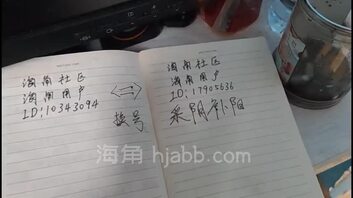 海角社区
海角用户
ID:10343094
换号
海角社区
海角用户
ID:17905636
采阴补阳
海角 hjabb.com